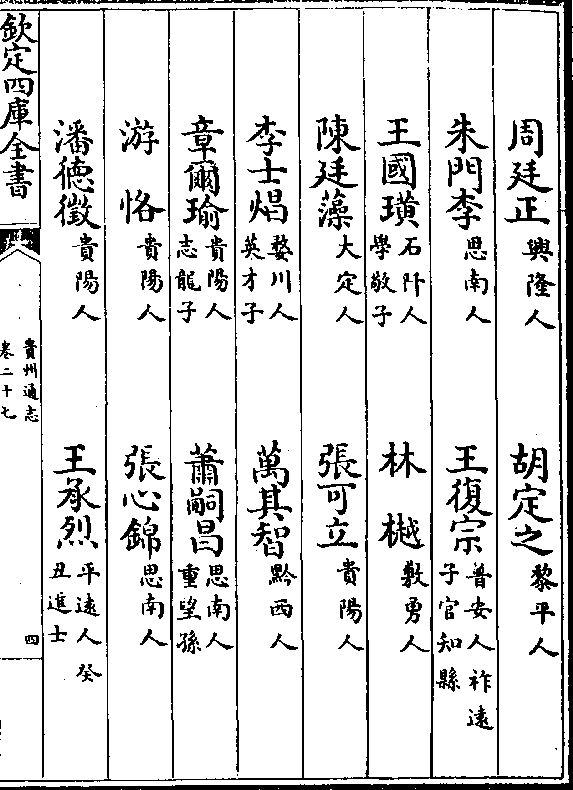 周廷正興隆人 胡定之黎平人
朱門李思南人 王復宗普安人祚遠子官知縣
王國璜石阡人學敬子 林樾敷勇人
陳廷藻大定人 張可立貴陽人
李士焻婺川人英才子 萬其智黔西人
章爾瑜貴陽人志龍子 蕭嗣昌思南人重望孫
游恪貴陽人 張心錦思南人
潘德徵貴陽人 王承烈平遠人癸丑進士
欽定四庫全書
貴州通志
卷二十七
四